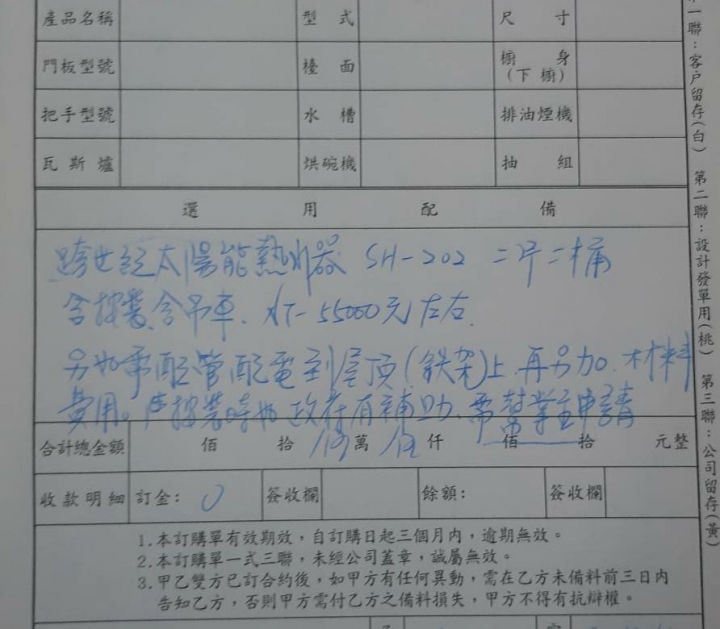 產品名稱 型式 尺寸
門板型號 檯面 櫥身(下櫥)
把手型號 水槽 排油煙機
瓦斯爐 烘碗機 抽組
選用配備
跨世紀太陽能熱水器 SH-202 二片二桶
含按裝、含吊車. 55000元左右.
另如需配管配電到屋頂(鐵架)上、再另加、材料
費用。 按裝時如政府有補助、需幫業主申請
合計總金額 佰 拾 伍萬 伍仟 佰 拾 元整
收款明細 訂金: 0 簽收欄 餘額: 簽收欄
1.本訂購單有效期效,自訂購日起三個月內,逾期無效。
2.本訂購單一式三聯,未經公司蓋章,誠屬無效。
3.甲乙雙方已訂合約後,如甲方有任何異動,需在乙方未備料前三日內
告知乙方,否則甲方需付乙方之備料損失,甲方不得有抗辯權。
一聯:客戶留存(白) 第二聯:設計發單用(桃) 第三聯:公司留存(黃)